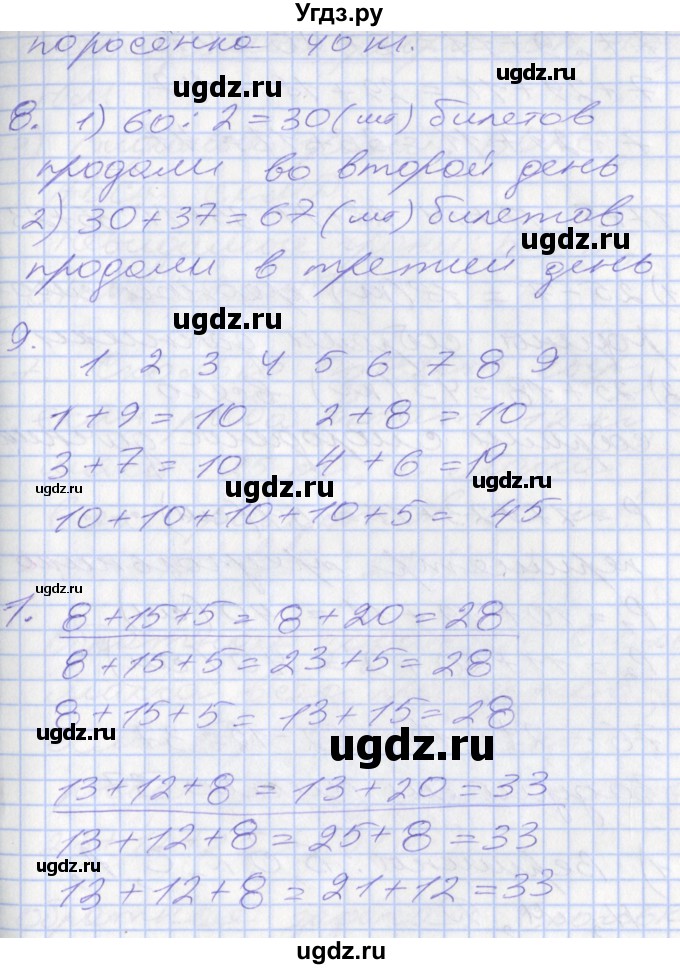 Угдз.ру
поросёнка 46 кг.
ugdz.ru
ugdz.ru
8. 1) 60 : 2 = 30 (шт) билетов
продали во второй день
ugdz.ru
2) 30 + 37 = 67 (шт) билетов
ugdz.ru
продали в третий день
ugdz.ru
9.
1 2 3 4 5 6 7 8 9
1 + 9 = 10 2 + 8 = 10
3 + 7 = 10 4 + 6 = 10
ugdz.ru ugdz.ru ugdz.ru
10 + 10 + 10 + 10 + 5 = 45
ugdz.ru
1. 8 + 15 + 5 = 8 + 20 = 28
8 + 15 + 5 = 23 + 5 = 28
8 + 15 + 5 = 13 + 15 = 28
ugdz.ru ugdz.ru
13 + 12 + 8 = 13 + 20 = 33
13 + 12 + 8 = 25 + 8 = 33
ugdz.ru
13 + 12 + 8 = 21 + 12 = 33
ugdz.ru